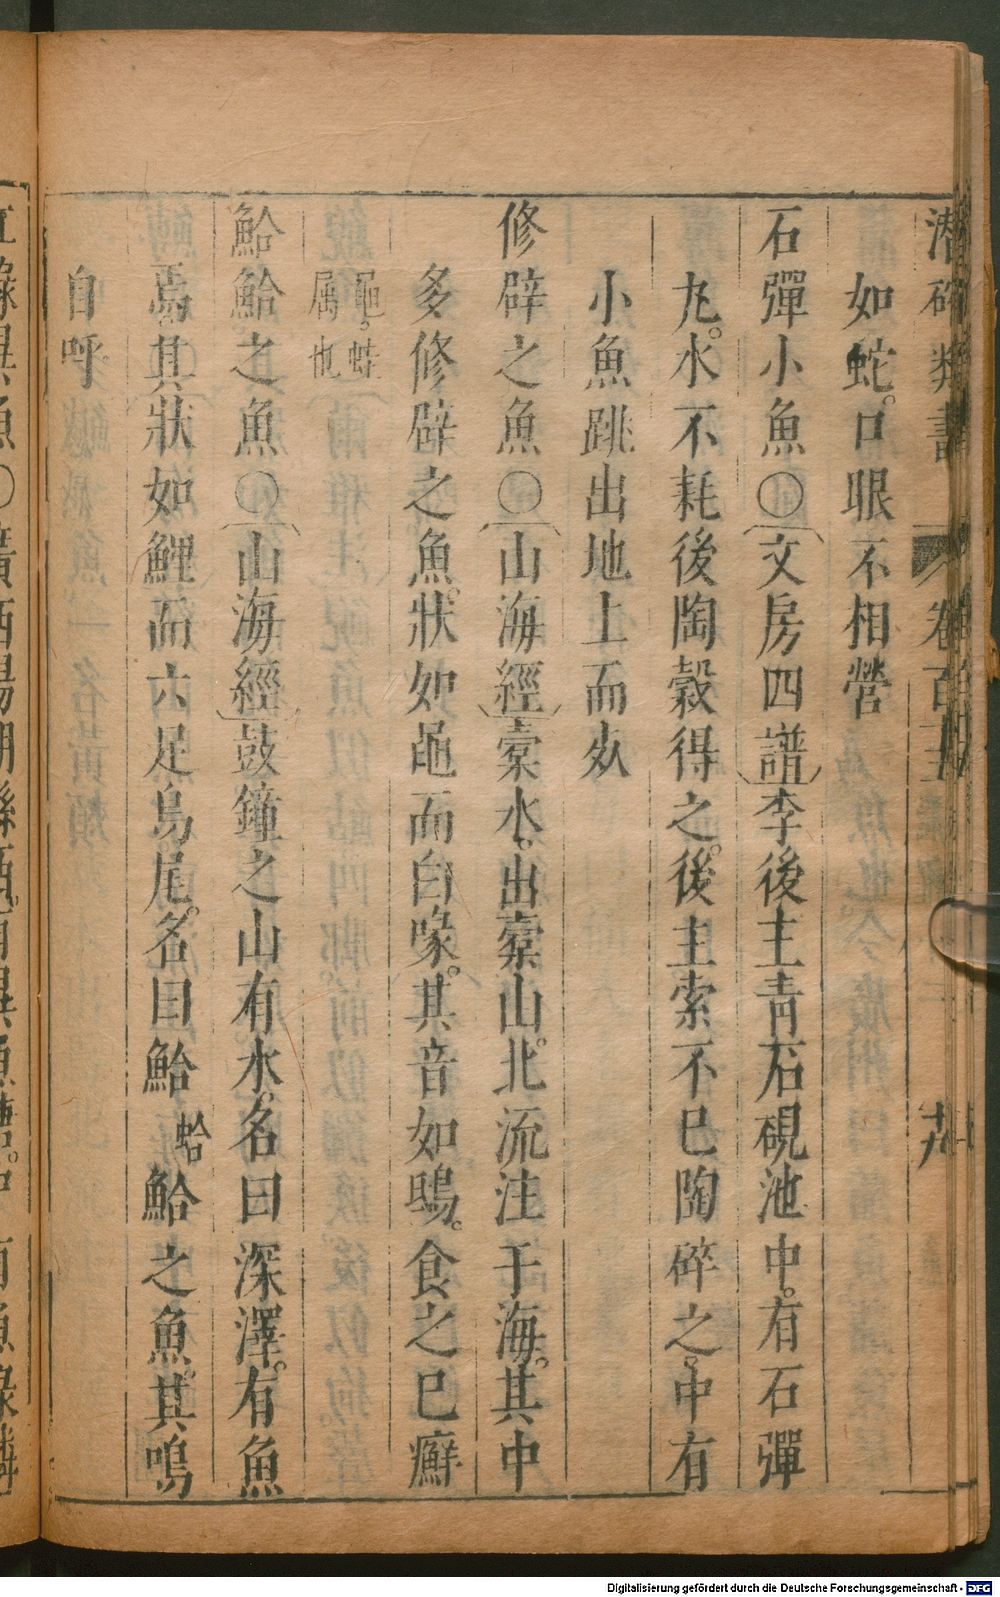 潛確類書 卷百
如蛇。口眼不相營
石彈小魚〇文房四譜李後主青石硯池中。有石彈
丸。水不耗後陶穀得之。後主索不已陶碎之。中有
小魚跳出地上而死
修辟之魚〇山海經橐水。出橐山。北流注于海。其中
多修辟之魚。狀如黽而白喙。其音如鴟。食之已癬
黽。蛙
属也
鮯鮯之魚〇山海經鼓鐘之山有水。名曰深澤。有魚
焉。其狀如鯉而六足鳥尾。名曰鮯蛤鮯之魚。其鳴
自呼
Digitalisierung gefördert durch die Deutsche Forschungsgemeinschaft - DFG